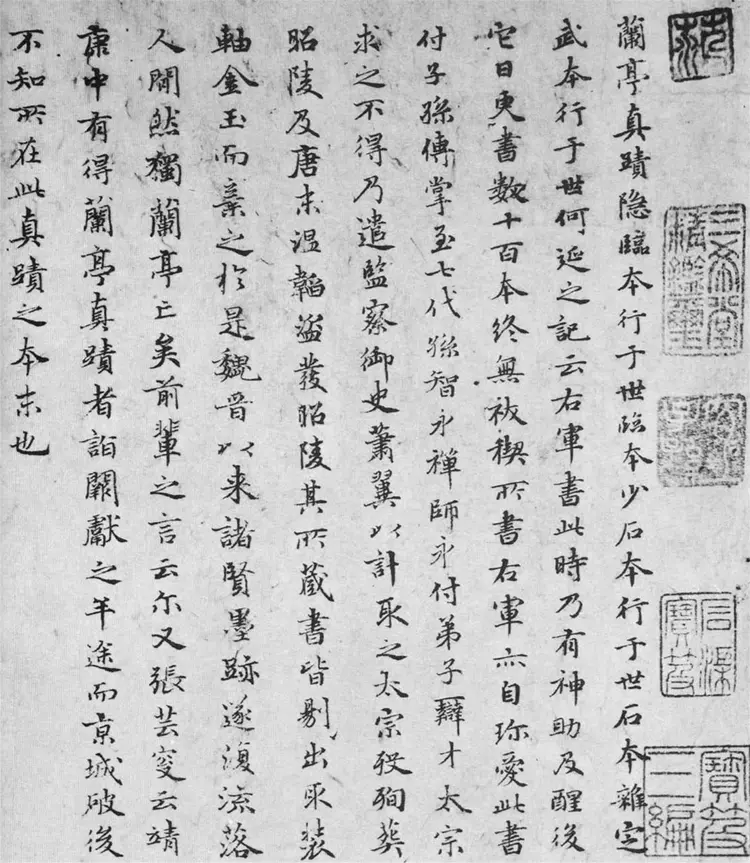 蘭亭真蹟隐臨本行于世臨本少石本行于世石本雜定
武本行于世何延之記云右軍書此時乃有神助及醒後
它日更書数十百本終無祓禊所書右軍亦自珎愛此書
付子孫傳掌至七代孫智永禪師永付弟子辯才太宗
求之不得乃遣監察御史蕭翼以計取之太宗殁殉葬
昭陵及唐末温韜盜發昭陵其所藏書皆剔出取装
軸金玉而棄之於是魏晋以来諸賢墨跡遂復流落
人間然獨蘭亭亡矣前輩之言云尔又張芸叟云靖
康中有得蘭亭真蹟者詣闕獻之半途而京城破後
不知所在此真蹟之本末也
三希堂
精鑑璽
宜子孫
石渠
寶笈
寶笈
三編